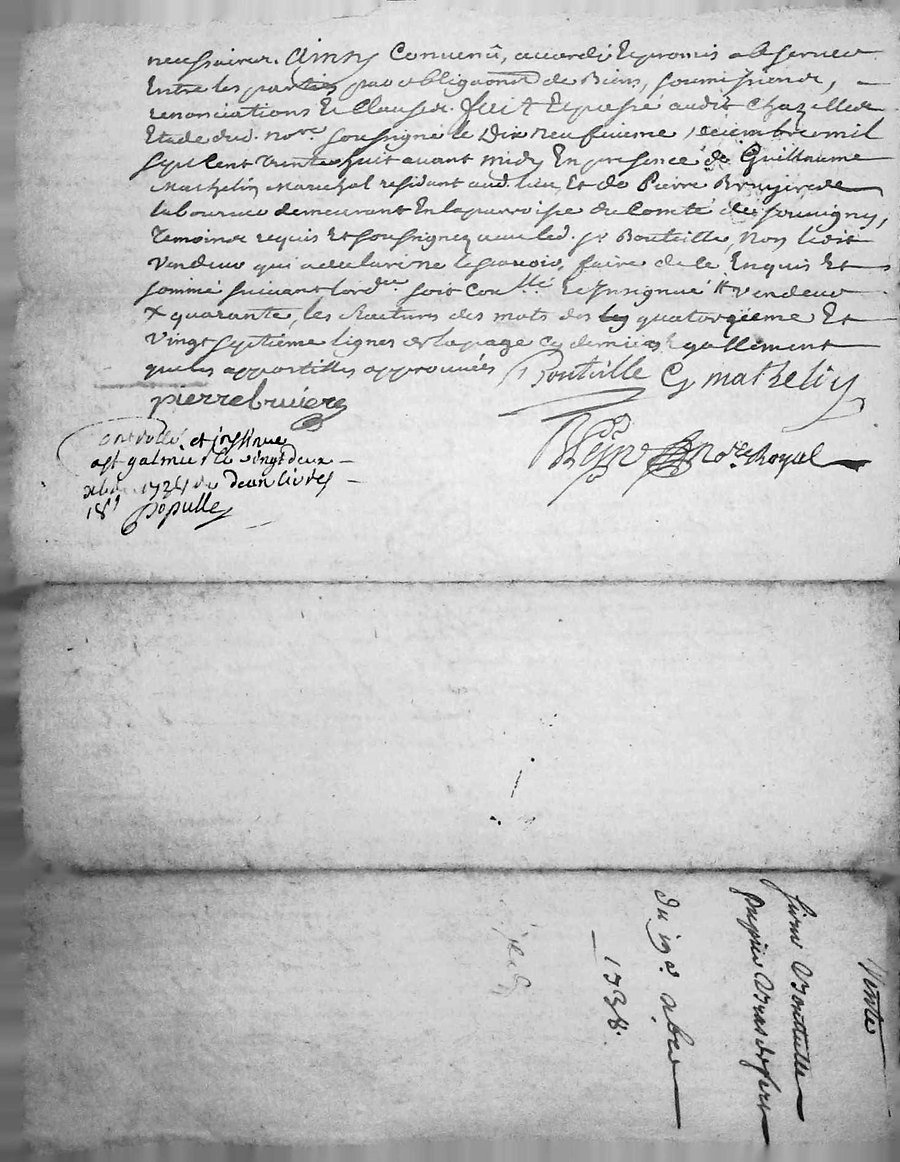 necessaires. Ainsy Convenû, accordé Et promis observer
Entre les parties par obligaõns de Biens, soumissions,
renonciations Et Clauses. fait Et passé audit Chazelles
Etude dud. nore soussigné le Dix neufvieme decembre mil
sept Cent trente huit avant midy En presence de Guillaume
Mathelin marechal residant aud. lieu Et de Pierre Bruyere
laboureur demeurant En la parroisse du Comté de souvigny,
Temoins requis Et soussignez avec led. sr Bouteille, non ledit
vendeur qui a declaré ne le scavoir faire de ce Enquis Et
sommé suivant lordce soit Conllé Et Insignué
quarante, les ratures des mots des quatorzieme Et
vingt septieme lignes de la page cy derniere Egallement
que les appostilles approuvées Boutville G mathelin
pierre bruiere
nore Royal
controllé et insinué
a st galmier le vingt deux
xbre 1738 deux livres
18s
populle
Vente
sieur Bouteille
papier Bras de fert
du 19e xbre
1738.